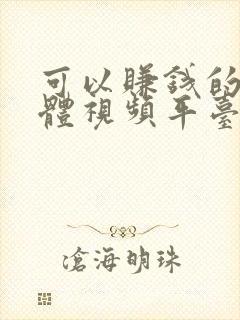 可以賺錢的
體視頻平臺
滄海明珠